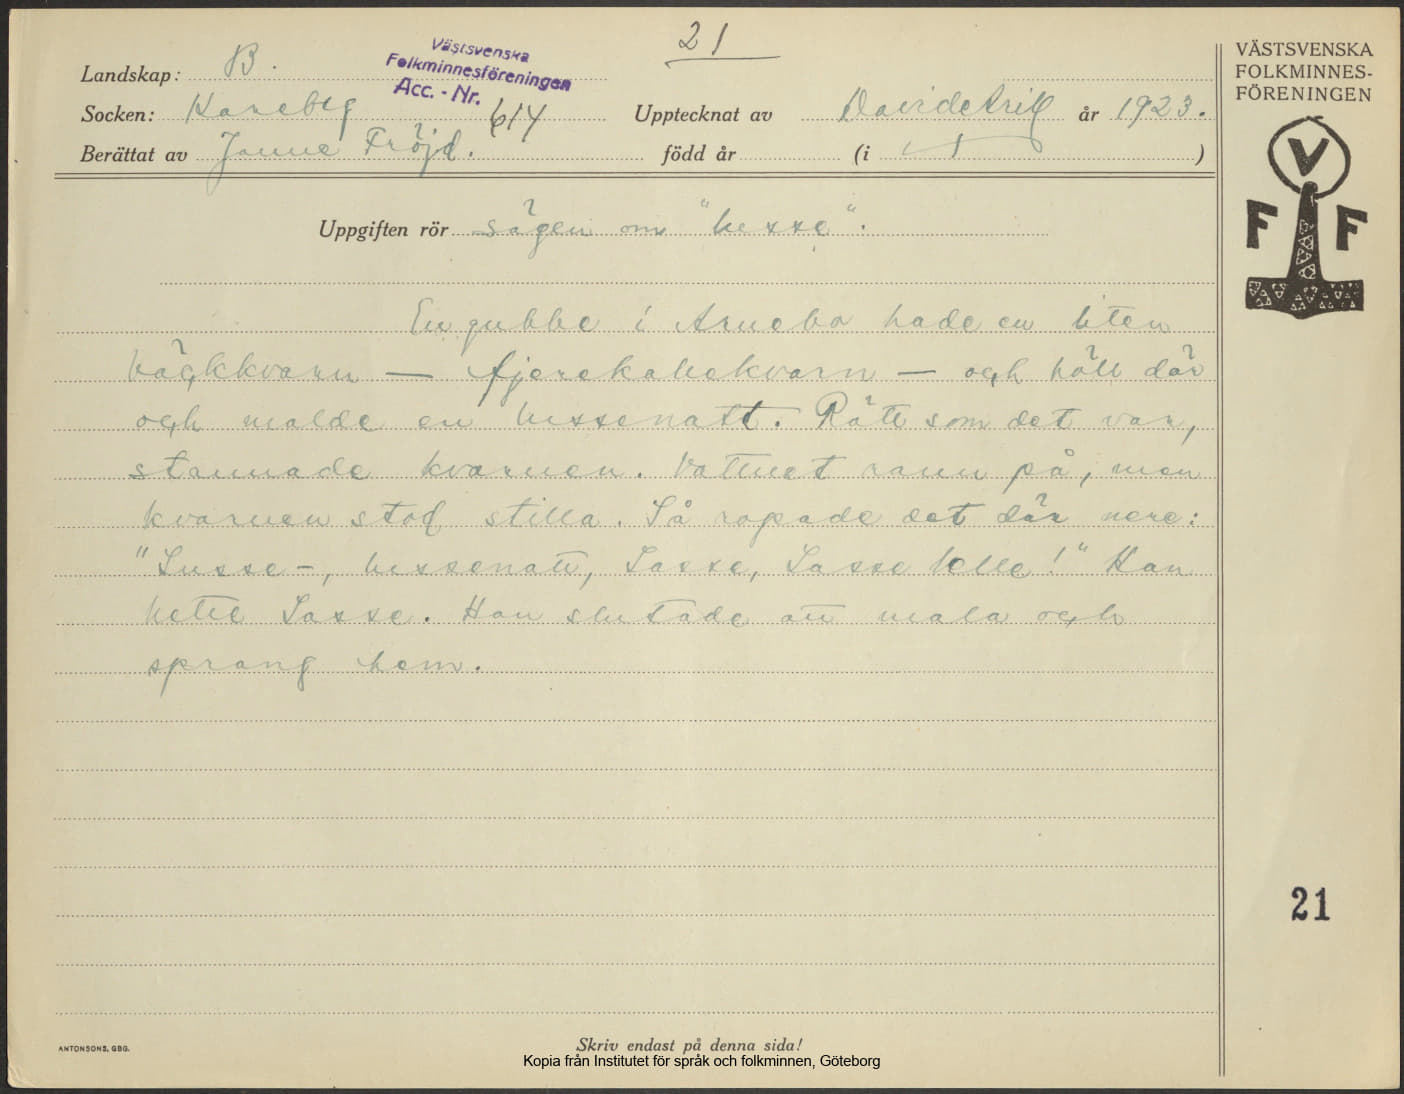 21
Landskap: B.
Västsvenska
Folkminnesföreningen
Acc. - Nr. 614
VÄSTSVENSKA
FOLKMINNES-
FÖRENINGEN
Socken: Upptecknat av år 1923.
Berättat av Janne Fröjd. född år (i )
V
F F
Uppgiften rör sägen om "lusse".
En gubbe i Arnebo hade en liten
bäckkvarn — fjerekallekvarn — och höll där
och malde en lussenatt. Rätt som det var,
stannade kvarnen. Vattnet rann på, men
kvarnen stod stilla. Så ropade det där nere:
"Lusse-, lussenatt, Lasse, Lasse lelle!" Han
hette Lasse. Han slutade att mala och
sprang hem.
21
ANTONSONS, GBG.
Skriv endast på denna sida!
Kopia från Institutet för språk och folkminnen, Göteborg